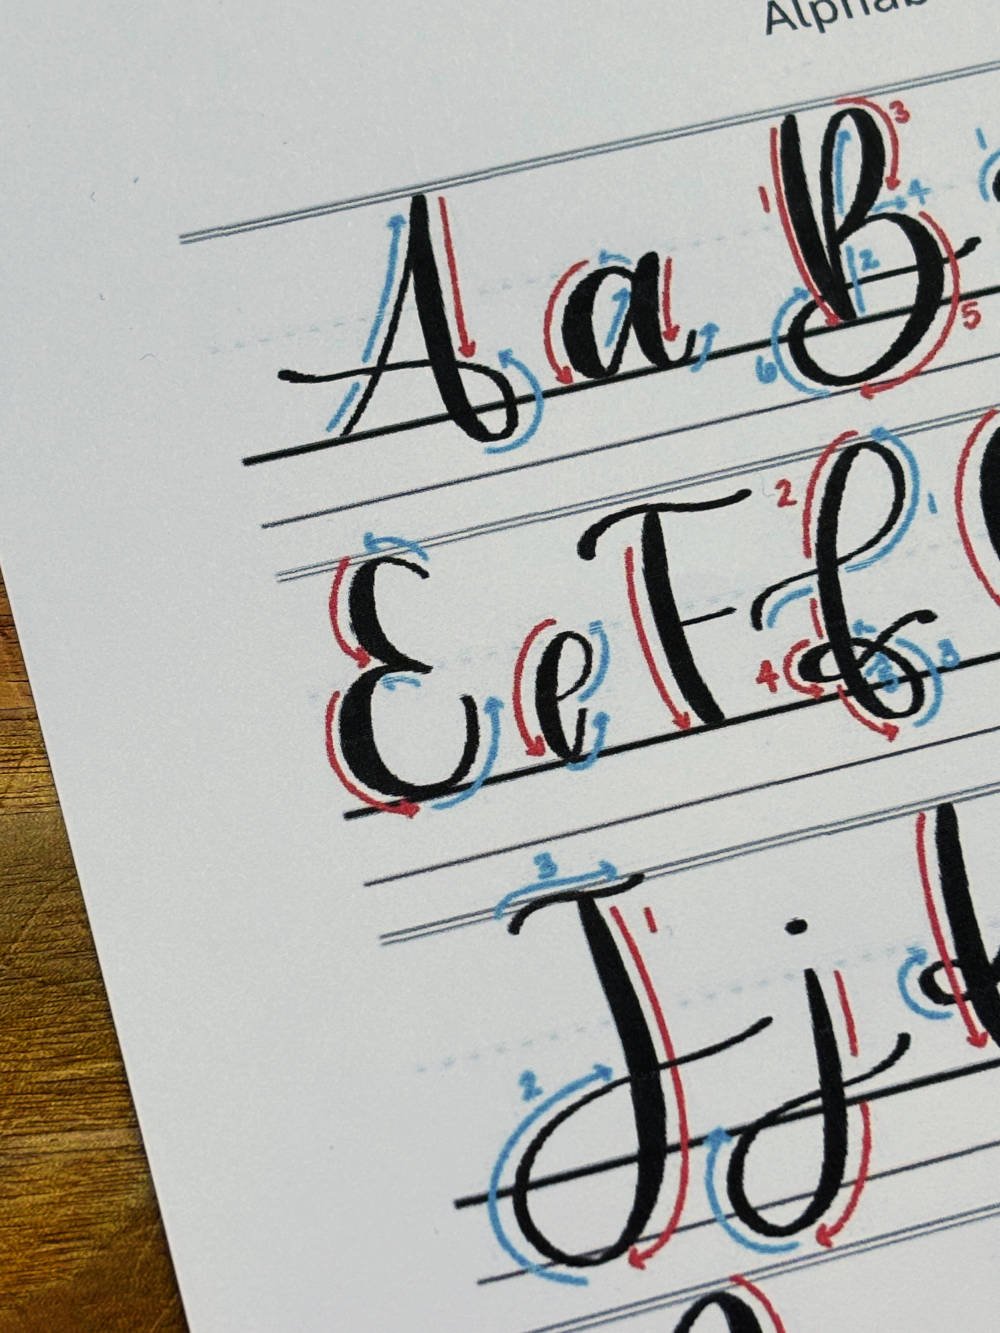 Alphab
3
1
1
4
A a B
2
5
6
2
1
E e F f
4
3
3
1
J j
2